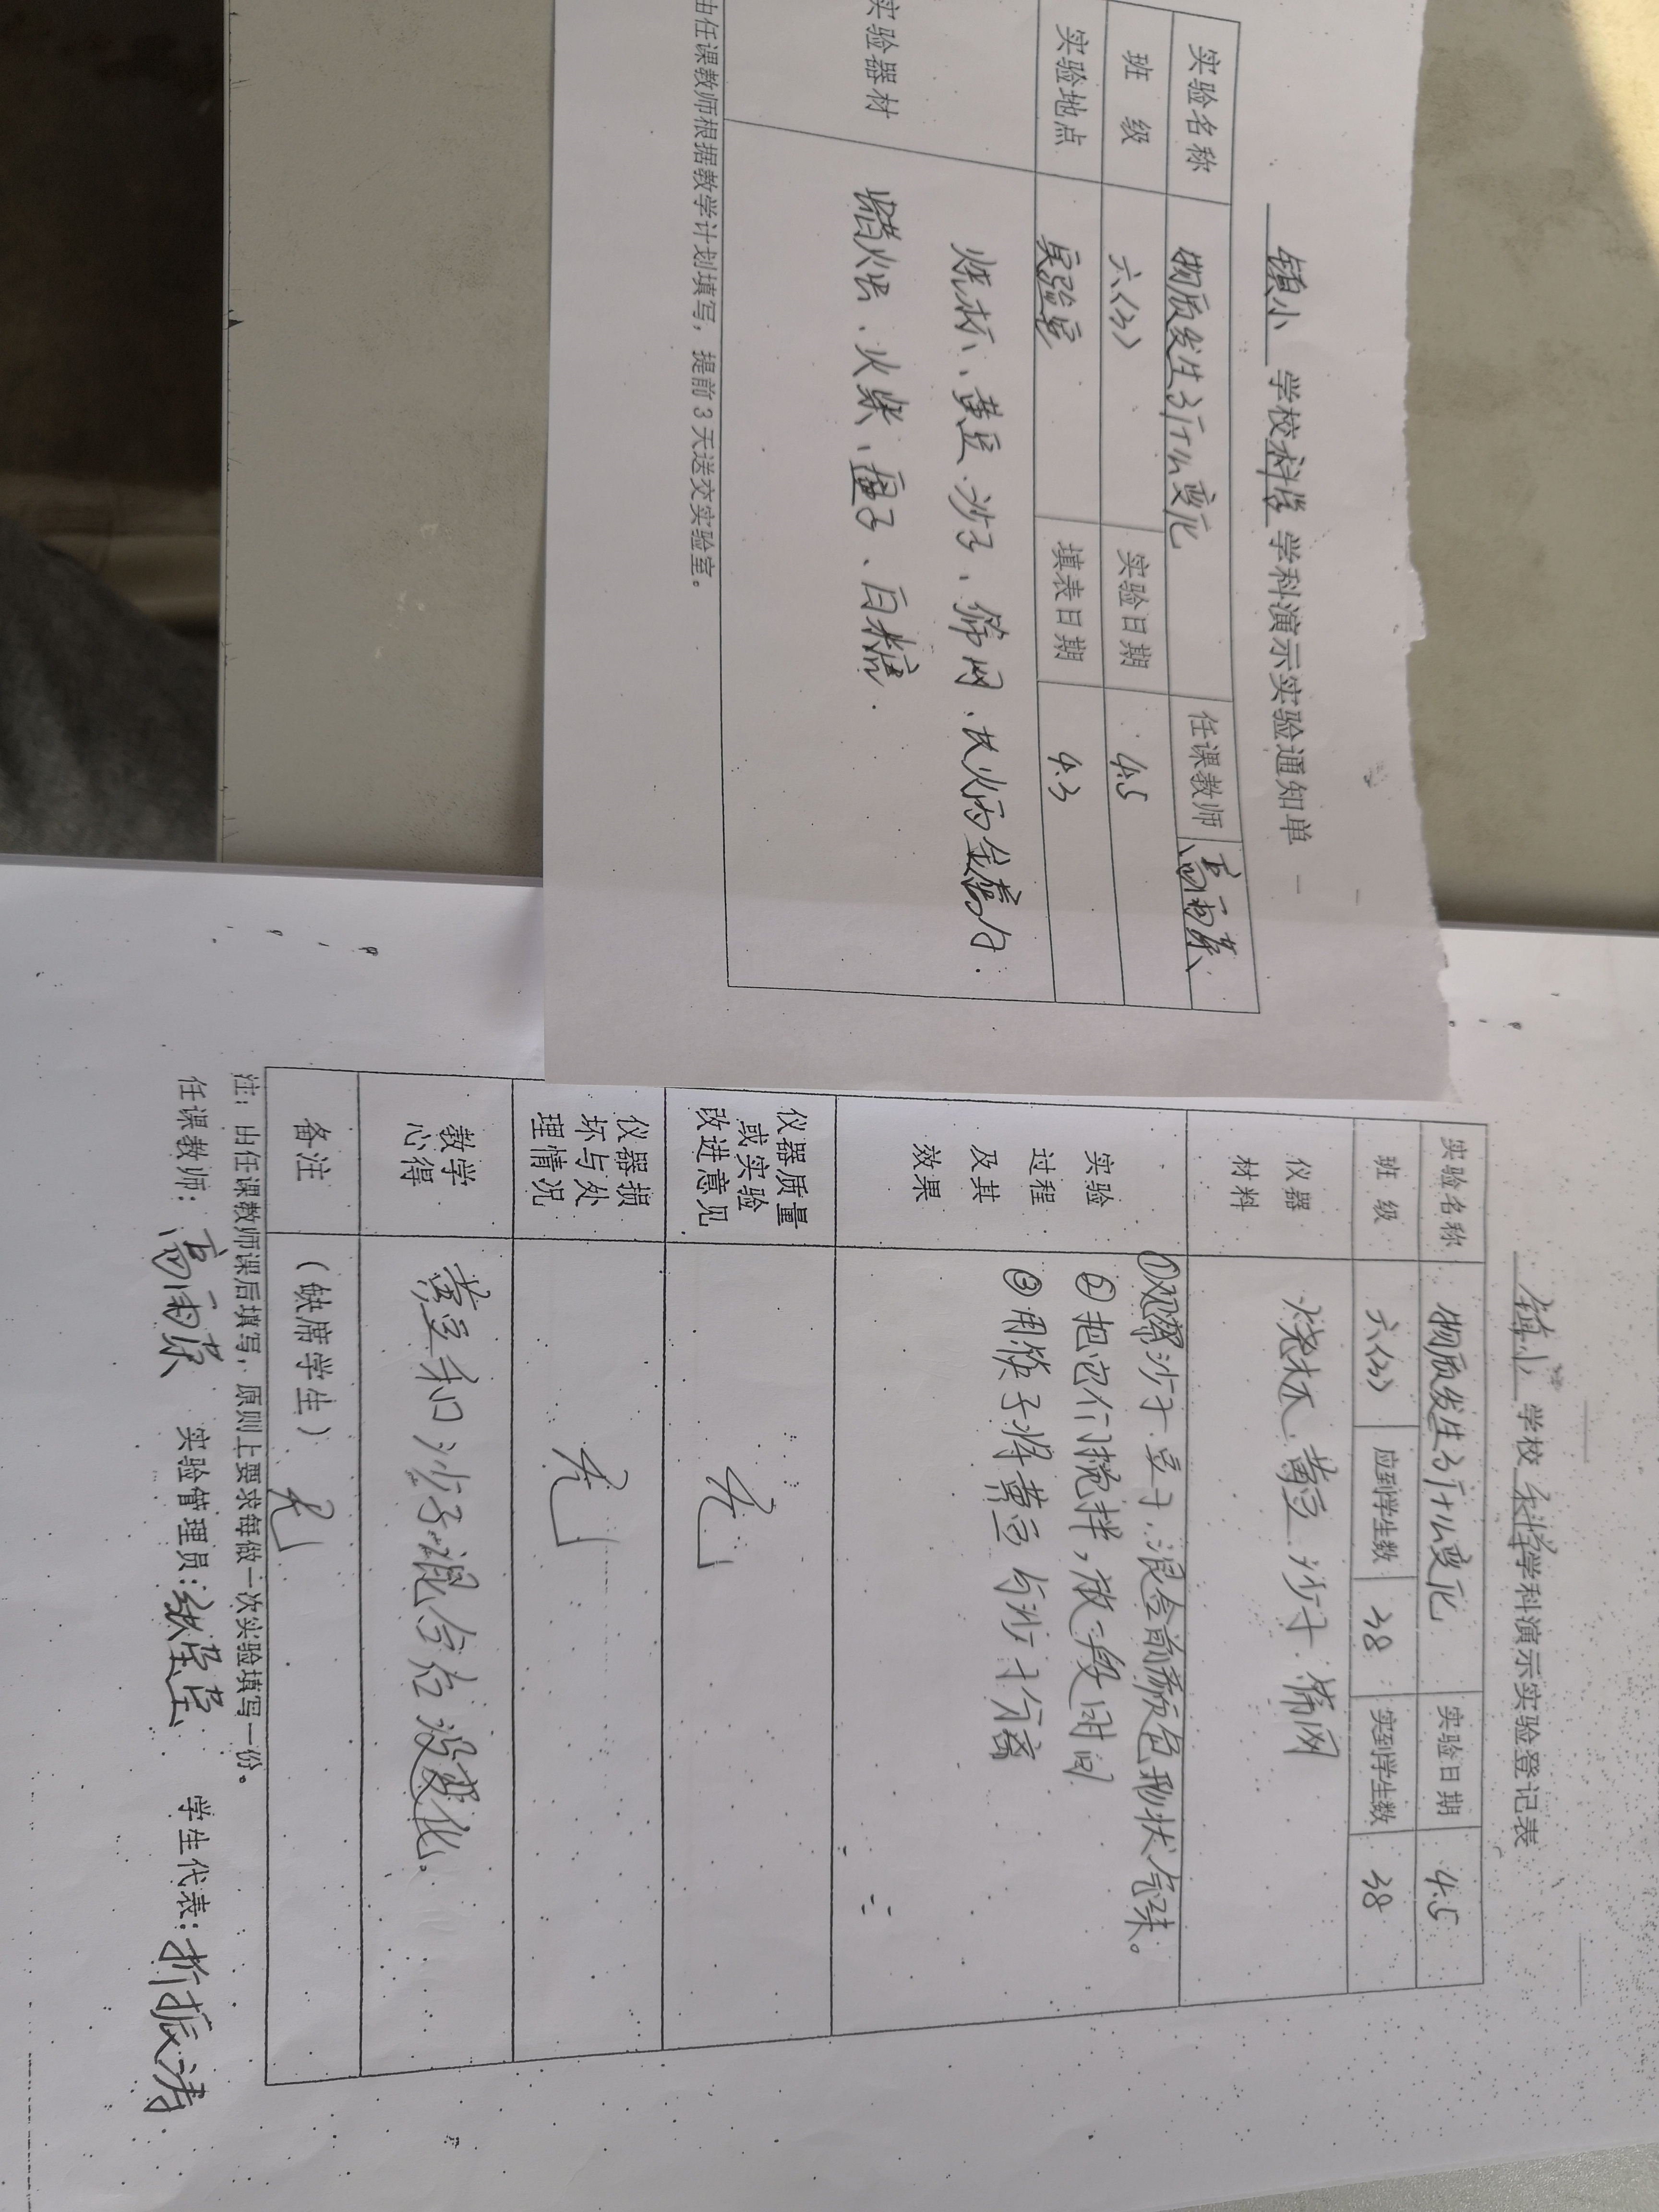 镇小 学校 科学 学科演示实验通知单
实验名称 物质发生了什么变化 任课教师 高雨荪
班 级 六(3) 实验日期 4.5
实验地点 实验室 填表日期 4.3
实验器材 烧杯、黄豆、沙子、筛网、长火柄金属勺.
蜡烛、火柴、盘子、白糖.
由任课教师根据教学计划填写，提前3天送交实验室。
镇小 学校 科学 学科演示实验登记表
实验名称 物质发生了什么变化 实验日期 4.5
班 级 六(3) 应到学生数 38 实到学生数 38
仪器材料 烧杯、黄豆、沙子、筛网
实验过程及其效果 ①观察沙子.豆子.混合前颜色形状气味。
②把它们搅拌，放一段时间
③用筷子将黄豆与沙子分离
仪器质量或实验改进意见 无
仪器损坏与处理情况 无
教学心得 黄豆和沙子混合后没变化。
备注 (缺席学生) 无
注：由任课教师课后填写，原则上要求每做一次实验填写一份。
任课教师：高雨荪 实验管理员：张莹莹 学生代表：折振涛